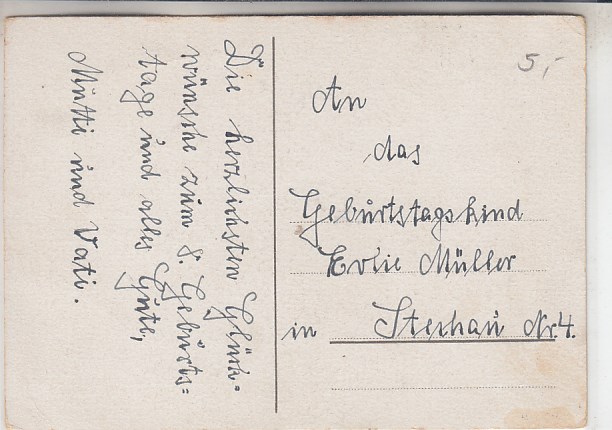 Die herzlichsten Glück-
wünsche zum 8 Geburts=
tage und alles Gute,
Mutti und Vati.
5,-
An
das
Geburtstagskind
Evie Müller
in Sterhau Nr. 4.